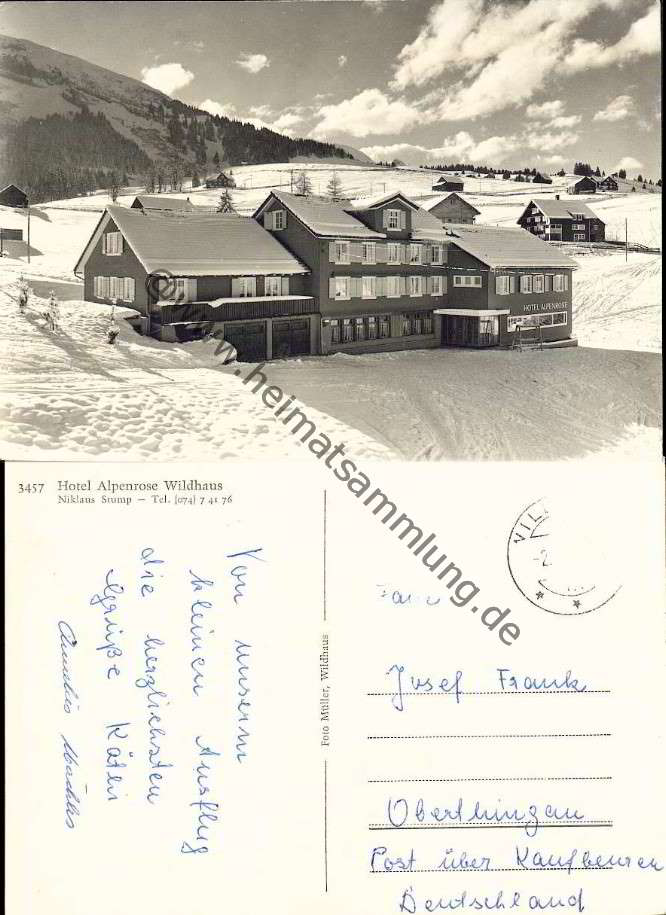 HOTEL ALPENROSE
www.heimatsammlung.de
3457 Hotel Alpenrose Wildhaus
Niklaus Stump – Tel. (074) 7 41 76
Von unserm
kleinen Ausflug
die herzlichsten
Grüße Käthi
Foto Müller, Wildhaus
Josef Frank
Oberthingau
Post über Kaufbeuren
Deutschland